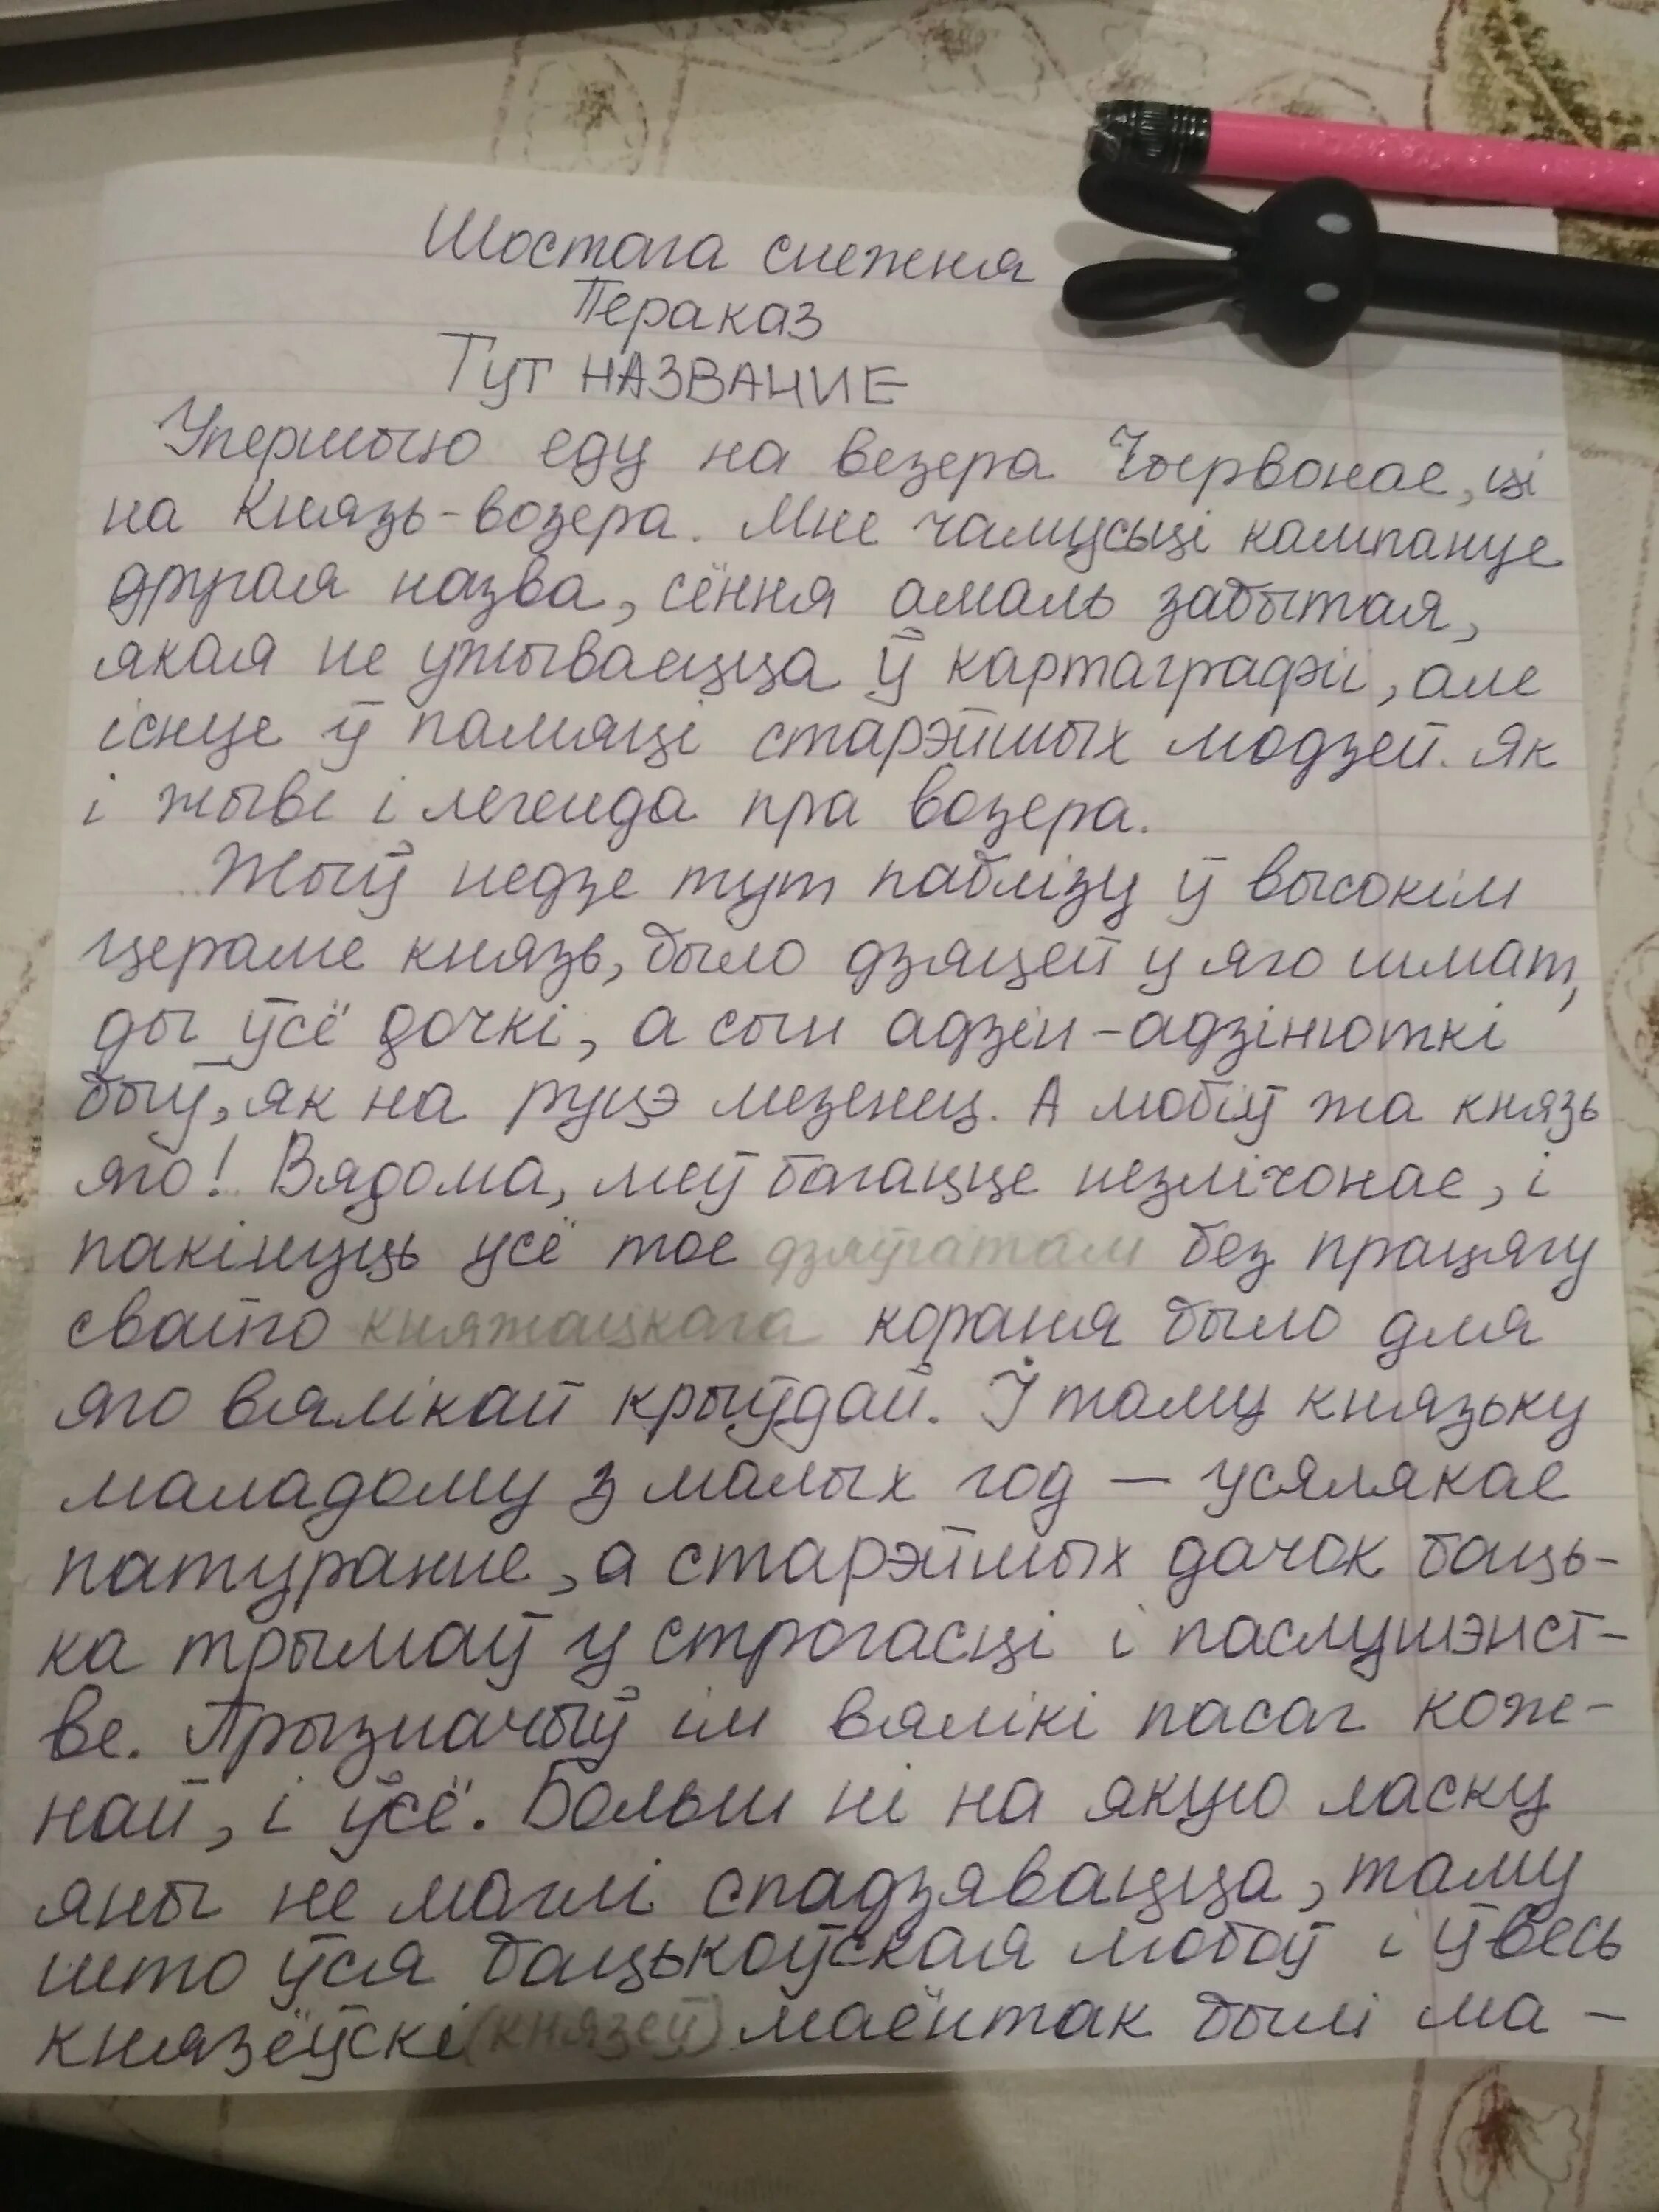 Шостага снежня
Пераказ
Тут НАЗВАНИЕ
Упершыню еду на везера Чырвонае, ці
на Князь-возера. Мне чамусьці кампануе
другая назва, сёння амаль забытая,
якая не ужываецца ў картаграфіі, але
існуе ў памяці старэйшых людзей. Як
і жыве і легенда пра возера.
Жыў недзе тут паблізу ў высокім
цераме князь, было дзяцей у яго шмат,
ды ўсё дочкі, а сын адзін-адзінюткі
быў, як на руцэ мезенец. А любіў жа князь
яго! Вядома, меў багацце незлічонае, і
пакінуць усё тое дзяўчатам без працягу
свайго княжацкага кораня было для
яго вялікай крыўдай. І таму князьку
маладому з малых год — усялякае
патуранне, а старэйшых дачок баць-
ка трымаў у строгасці і паслушэнст-
ве. Прызначыў ім вялікі пасаг кож-
най, і ўсё. Больш ні на якую ласку
яны не маглі спадзявацца, таму
што ўся бацькоўская любоў і ўвесь
князёўскі (князеў) маёнтак былі ма-